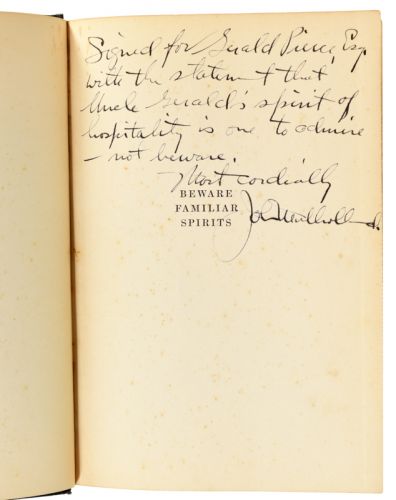 Signed for Gerald Pierce, Esq.
with the statement that
Uncle Gerald's spirit of
hospitality is one to admire
– not beware.
Most cordially
BEWARE
FAMILIAR
SPIRITS
John Mulholland.